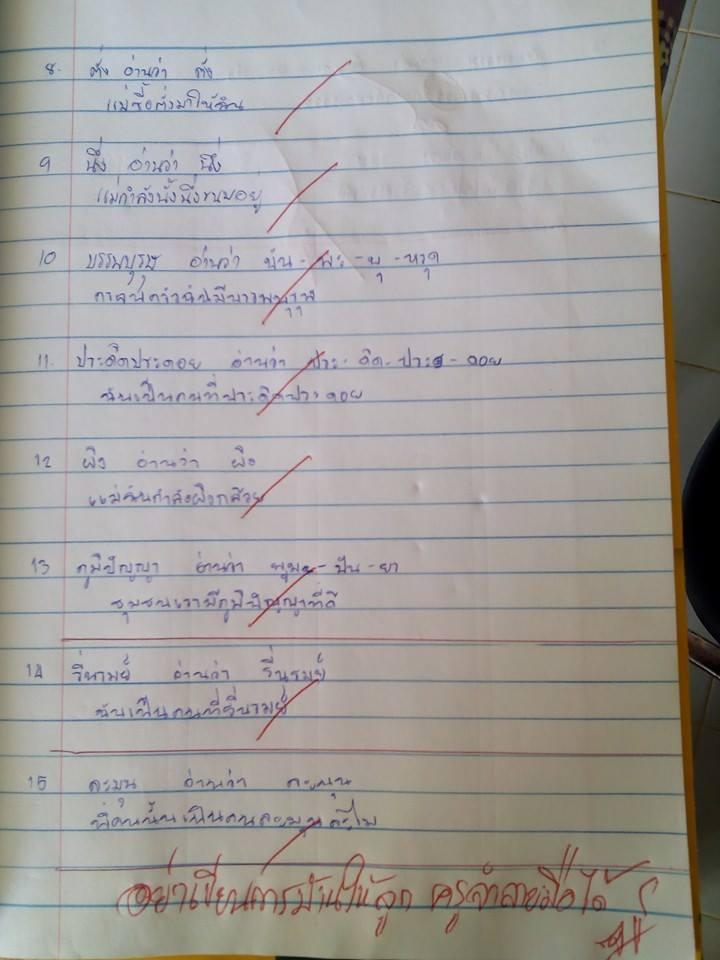 8. ตั่ง อ่านว่า ตั่ง
แม่ซื้อตั่งมาให้ฉัน
9 นึ่ง อ่านว่า นึ่ง
แม่กำลังนั้งนึ่งขนมอยู่
10 บรรพบุรุษ อ่านว่า บัน - พะ - บุ - หรุด
11. ประดิดประดอย อ่านว่า ประ - ดิด - ประ - ดอย
ฉันเป็นคนที่ประดิดประดอย
12 ผิง อ่านว่า ผิง
แม่ฉันกำลังผิงกล้วย
13 ภูมิปัญญา อ่านว่า พูม - ปัน - ยา
ชุมชนเรามีภูมิปัญญาที่ดี
14 รื่นรมย์ อ่านว่า รื่นรมย์
ฉันเป็นคนที่รื่นรมย์
15 ละมุน อ่านว่า ละมุน
อย่าเขียนการบ้านให้ลูก ครูจำลายมือได้